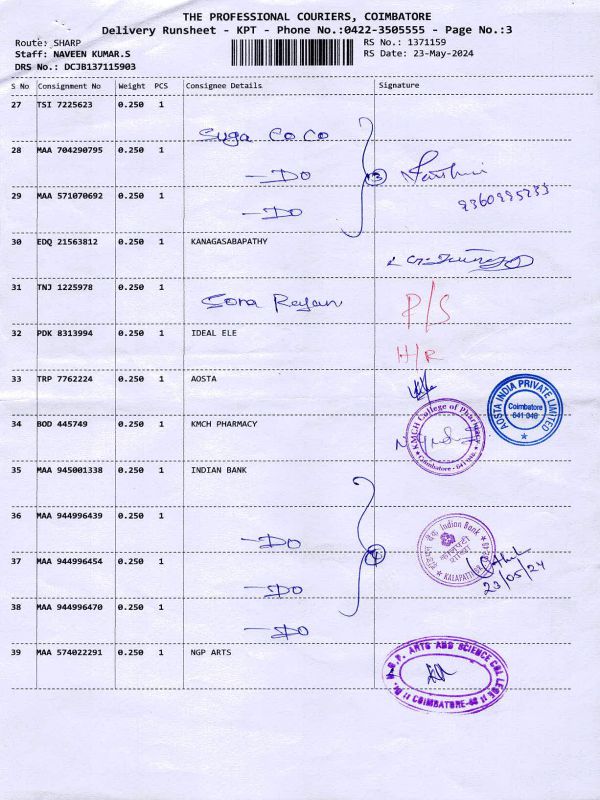 THE PROFESSIONAL COURIERS, COIMBATORE
Delivery Runsheet - KPT - Phone No.:0422-3505555 - Page No.:3
Route: SHARP
RS No.: 1371159
Staff: NAVEEN KUMAR.S
RS Date: 23-May-2024
DRS No.: DCJB137115903
S No Consignment No Weight PCS Consignee Details Signature
27 TSI 7225623 0.250 1
Suga CoCo
28 MAA 704290795 0.250 1
—Do
3
29 MAA 571070692 0.250 1
—Do
30 EDQ 21563812 0.250 1 KANAGASABAPATHY
31 TNJ 1225978 0.250 1
Sona Rajan P/S
32 PDK 8313994 0.250 1 IDEAL ELE
H/R
33 TRP 7762224 0.250 1 AOSTA
AOSTA INDIA PRIVATE LIMITED
Coimbatore
641 048
34 BOD 445749 0.250 1 KMCH PHARMACY
KMCH College of Pharmacy
Coimbatore - 641 048
35 MAA 945001338 0.250 1 INDIAN BANK
36 MAA 944996439 0.250 1
—Do
4
Indian Bank
KALAPATTI
37 MAA 944996454 0.250 1
—Do
23/05/24
38 MAA 944996470 0.250 1
—Do
39 MAA 574022291 0.250 1 NGP ARTS
N.G.P. ARTS AND SCIENCE COLLEGE
COIMBATORE-48